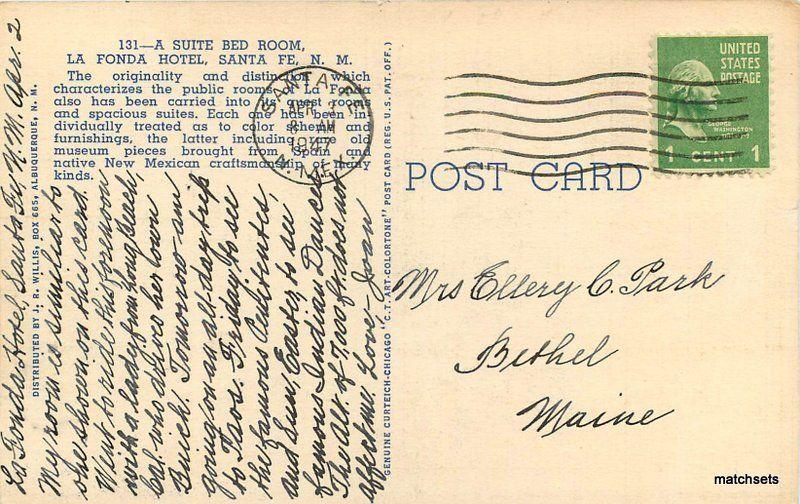 131—A SUITE BED ROOM,
LA FONDA HOTEL, SANTA FE, N. M.
The originality and distinction which
characterizes the public rooms of La Fonda
also has been carried into its guest rooms
and spacious suites. Each one has been in-
dividually treated as to color scheme and
furnishings, the latter including rare old
museum pieces brought from Spain and
native New Mexican craftsmanship of many
kinds.
DISTRIBUTED BY J. R. WILLIS, BOX 665, ALBUQUERQUE, N. M.
GENUINE CURTEICH-CHICAGO "C.T. ART-COLORTONE" POST CARD (REG. U. S. PAT. OFF.)
La Fonda Hotel, Santa Fe, N.M. Apr. 2
My room is similar to
one shown on this card.
Went to ride this forenoon
with a lady from Long Beach,
Cal. who drives her own
Buick. Tomorrow am
going on an all-day trip
to Taos. Friday to see
the famous Penitentes,
and Sun, Easter, to see
famous Indian Dances
The Alt. of 7,000 ft does not
affect me. Love, Joan
SANTA FE
APR 3
8 AM
1947
N. MEX.
UNITED
STATES
POSTAGE
GEORGE
WASHINGTON
1 CENT 1
POST CARD
Mrs Ellery C. Park
Bethel
Maine
matchsets